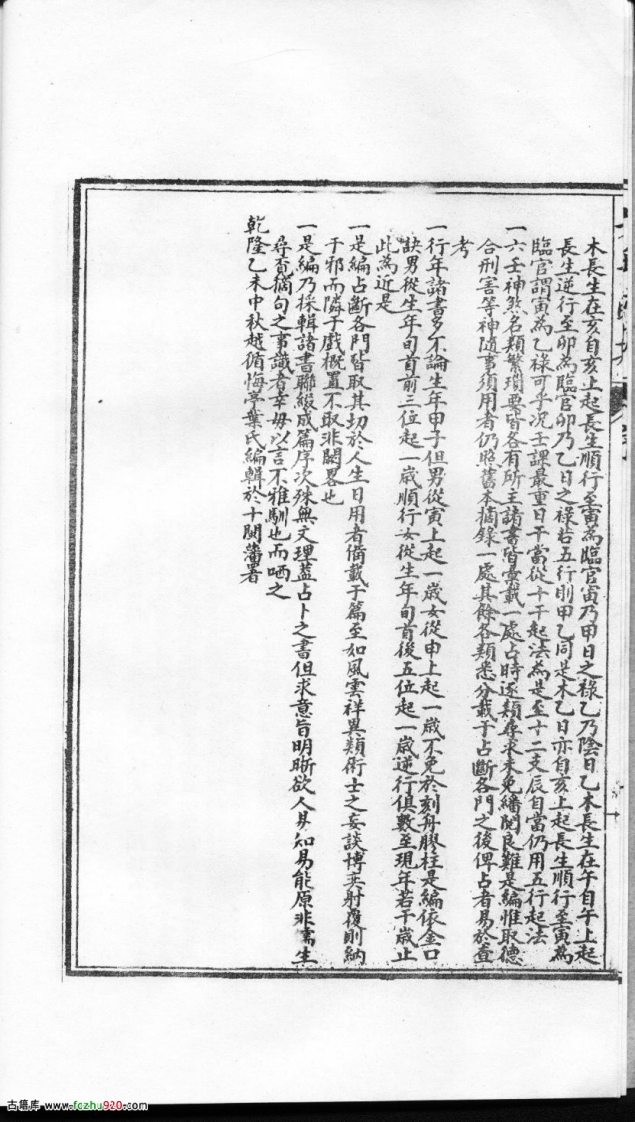 木長生在亥自亥上起長生順行至寅為臨官寅乃甲日之祿乙乃陰日乙木長生在午自午上起
長生逆行至卯為臨官卯乃乙日之祿若五行則甲乙同是木乙日亦自亥上起長生順行至寅為
臨官謂寅為乙祿可乎況壬課最重日干當從十干起法為是至十二支辰自當仍用五行起法
一六壬神煞名類繁瑣要皆各有所主諸書皆彙載一處占時逐類尋求未免繙閱良難是編惟取德
合刑害等神隨事須用者仍照舊本摘錄一處其餘各類悉分載于占斷各門之後俾占者易於查
考
一行年諸書多不論生年甲子但男從寅上起一歲女從申上起一歲不免於刻舟膠柱是編依金口
訣男從生年旬首前三位起一歲順行女從生年旬首後五位起一歲逆行俱數至現年若干歲止
此為近是
一是編占斷各門皆取其切於人生日用者備載于篇至如風雲祥異類術士之妄談博奕射覆則納
于邪而隣于戲概置不取非闕畧也
一是編乃採輯諸書聯綴成篇序次殊無文理蓋占卜之書但求意旨明晰欲人易知易能原非儒生
尋章摘句之事識者幸毋以言不雅馴也而哂之
乾隆乙未中秋越循悔亭葉氏編輯於十閩藩署
古籍库 www.fczhu920.com